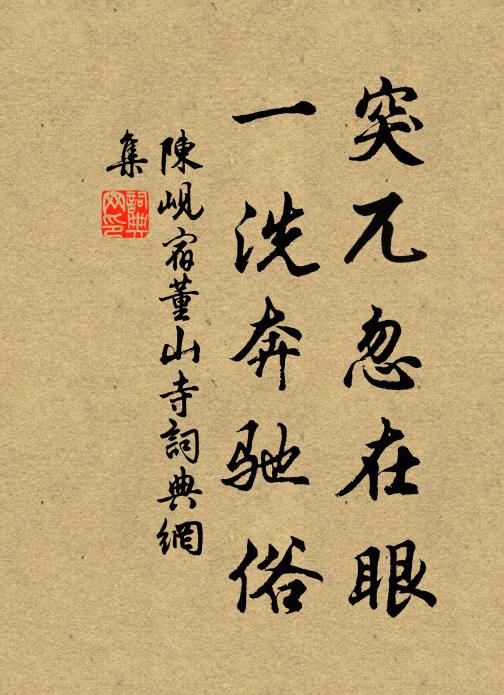 突兀忽在眼
一洗奔驰俗
陳峴宿董山寺詞典網
集
詞典
网印